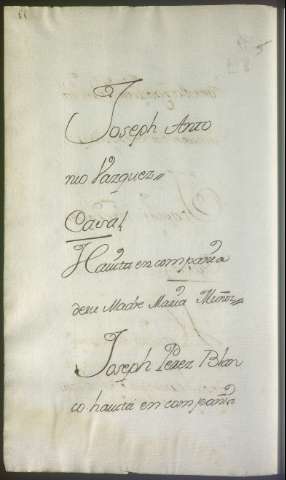 Joseph Anto
nio Vazquez //
Casa 1
Havita en compañia
de su Madre Maria Muñoz //
Joseph Perez Blan
co havita en compañia